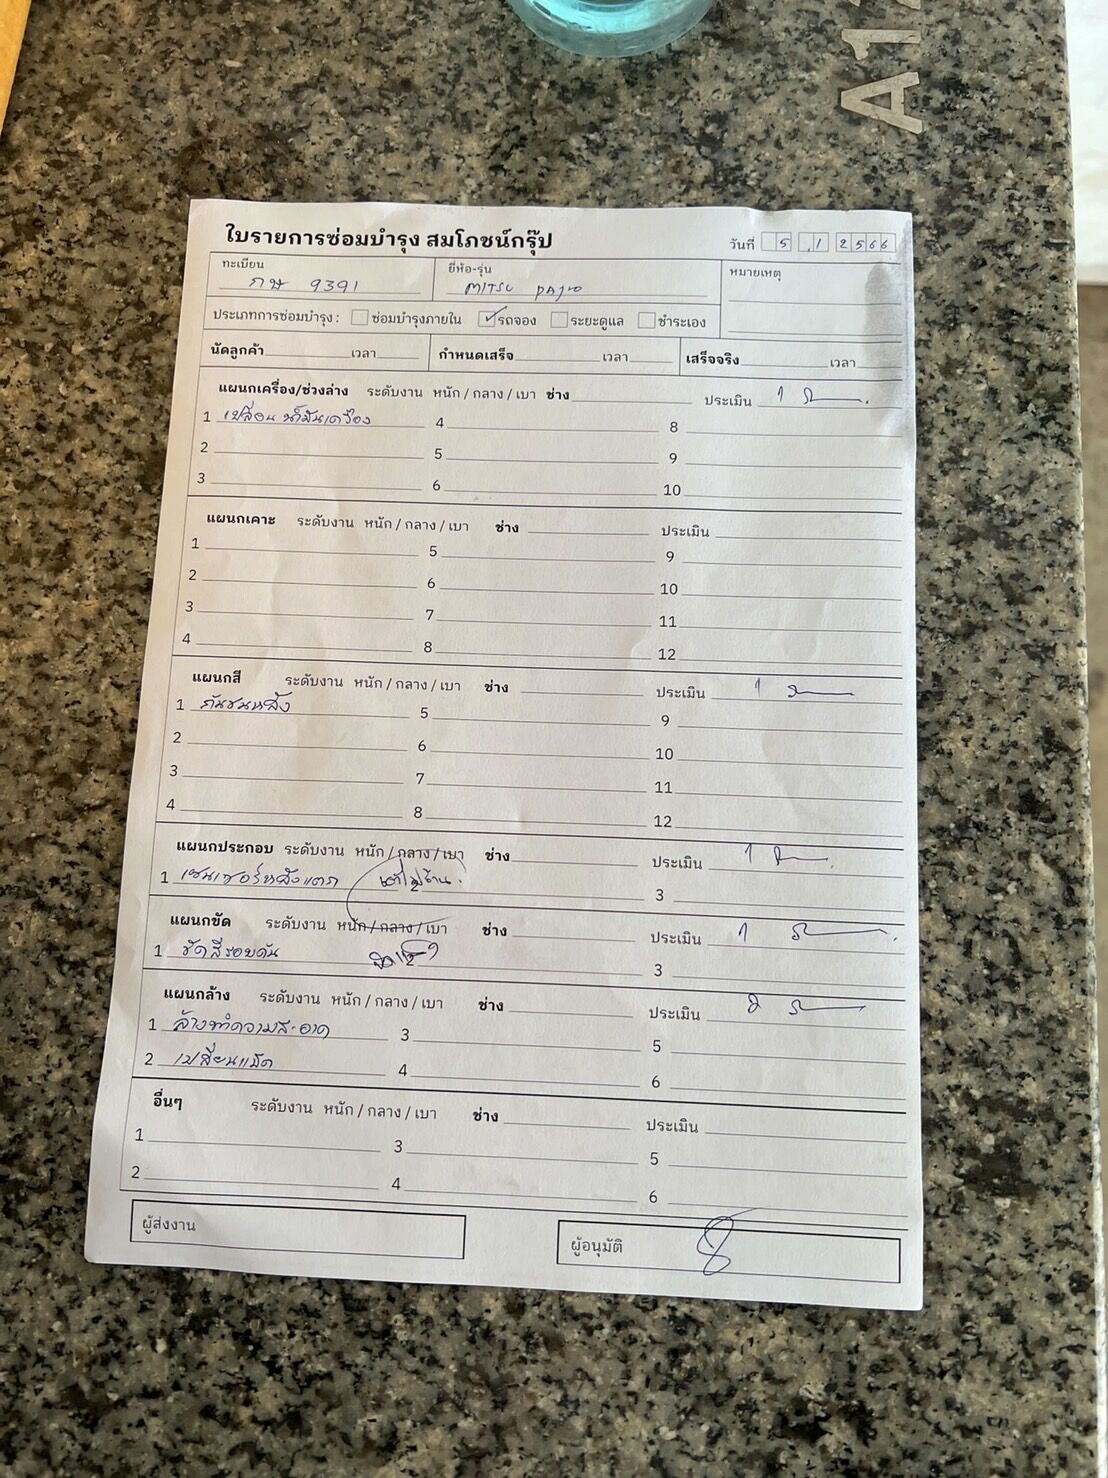 A1
ใบรายการซ่อมบำรุง สมโภชน์กรุ๊ป
วันที่ 5 1 2566
ทะเบียน กษ 9391 ยี่ห้อ-รุ่น MITSU pajro หมายเหตุ
ประเภทการซ่อมบำรุง : ซ่อมบำรุงภายใน ✓ รถจอง ระยะดูแล ชำระเอง
นัดลูกค้า เวลา กำหนดเสร็จ เวลา เสร็จจริง เวลา
แผนกเครื่อง/ช่วงล่าง ระดับงาน หนัก / กลาง / เบา ช่าง ประเมิน 1
1 เปลี่ยนน้ำมันเครื่อง 4 8
2 5 9
3 6 10
แผนกเคาะ ระดับงาน หนัก / กลาง / เบา ช่าง ประเมิน
1 5 9
2 6 10
3 7 11
4 8 12
แผนกสี ระดับงาน หนัก / กลาง / เบา ช่าง ประเมิน 1
1 กันชนหลัง 5 9
2 6 10
3 7 11
4 8 12
แผนกประกอบ ระดับงาน หนัก / กลาง / เบา ช่าง ประเมิน 1
1 เซนเซอร์หลังแตก 2 3
แผนกขัด ระดับงาน หนัก / กลาง / เบา ช่าง ประเมิน 1
1 ขัดสีรอบคัน 2 3
แผนกล้าง ระดับงาน หนัก / กลาง / เบา ช่าง ประเมิน 2
1 ล้างทำความสะอาด 3 5
2 เปลี่ยนแม็ค 4 6
อื่นๆ ระดับงาน หนัก / กลาง / เบา ช่าง ประเมิน
1 3 5
2 4 6
ผู้ส่งงาน ผู้อนุมัติ